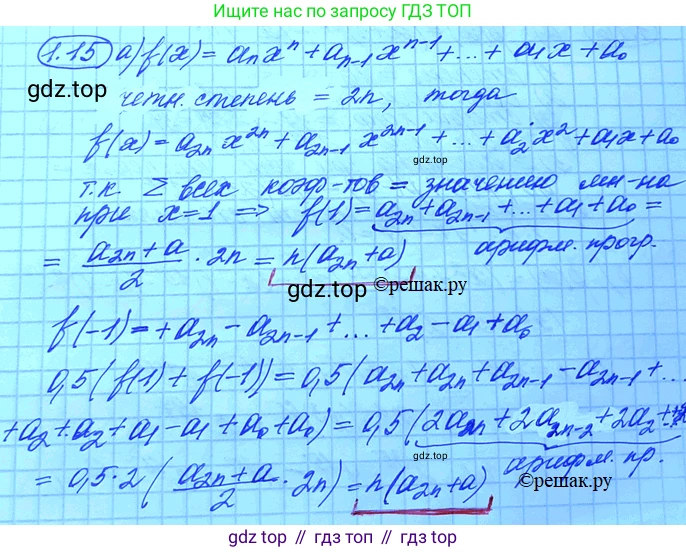 Ищите нас по запросу ГДЗ ТОП
1.15 а) f(x) = aₙxⁿ + aₙ₋₁xⁿ⁻¹ + ... + a₁x + a₀
gdz.top
четн. степень = 2n, тогда
f(x) = a₂ₙx²ⁿ + a₂ₙ₋₁x²ⁿ⁻¹ + ... + a₂x² + a₁x + a₀
gdz.top
т.к Σ всех коэф-тов = значению мн-на
при x=1 => f(1) = a₂ₙ + a₂ₙ₋₁ + ... + a₁ + a₀ =
= (a₂ₙ + a)/2 · 2n = n(a₂ₙ + a) арифм. прогр.
gdz.top ©решак.ру
f(-1) = +a₂ₙ - a₂ₙ₋₁ + ... + a₂ - a₁ + a₀
0,5(f(1) + f(-1)) = 0,5(a₂ₙ + a₂ₙ + a₂ₙ₋₁ - a₂ₙ₋₁ + ...
+ a₂ + a₂ + a₁ - a₁ + a₀ + a₀) = 0,5(2a₂ₙ + 2a₂ₙ₋₂ + 2a₂ +
gdz.top
= 0,5·2((a₂ₙ + a)/2 · 2n) = n(a₂ₙ + a) арифм. пр.
©решак.ру
gdz.top // gdz.top // gdz.top